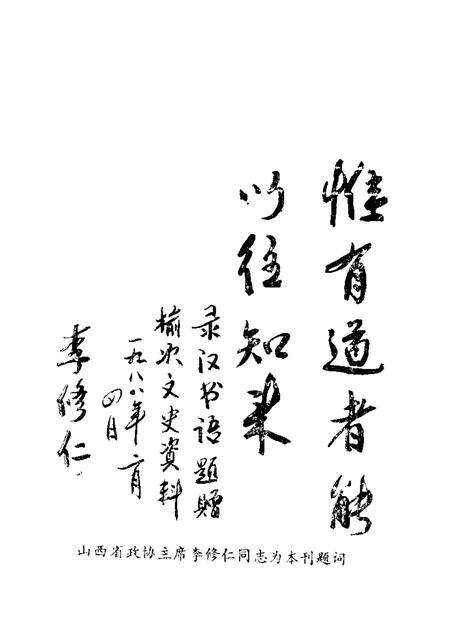 惟有道者能
以往知来
录汉书语题赠
榆次文史資料
一九八八年二月
四日
李修仁
山西省政协主席李修仁同志为本刊题词